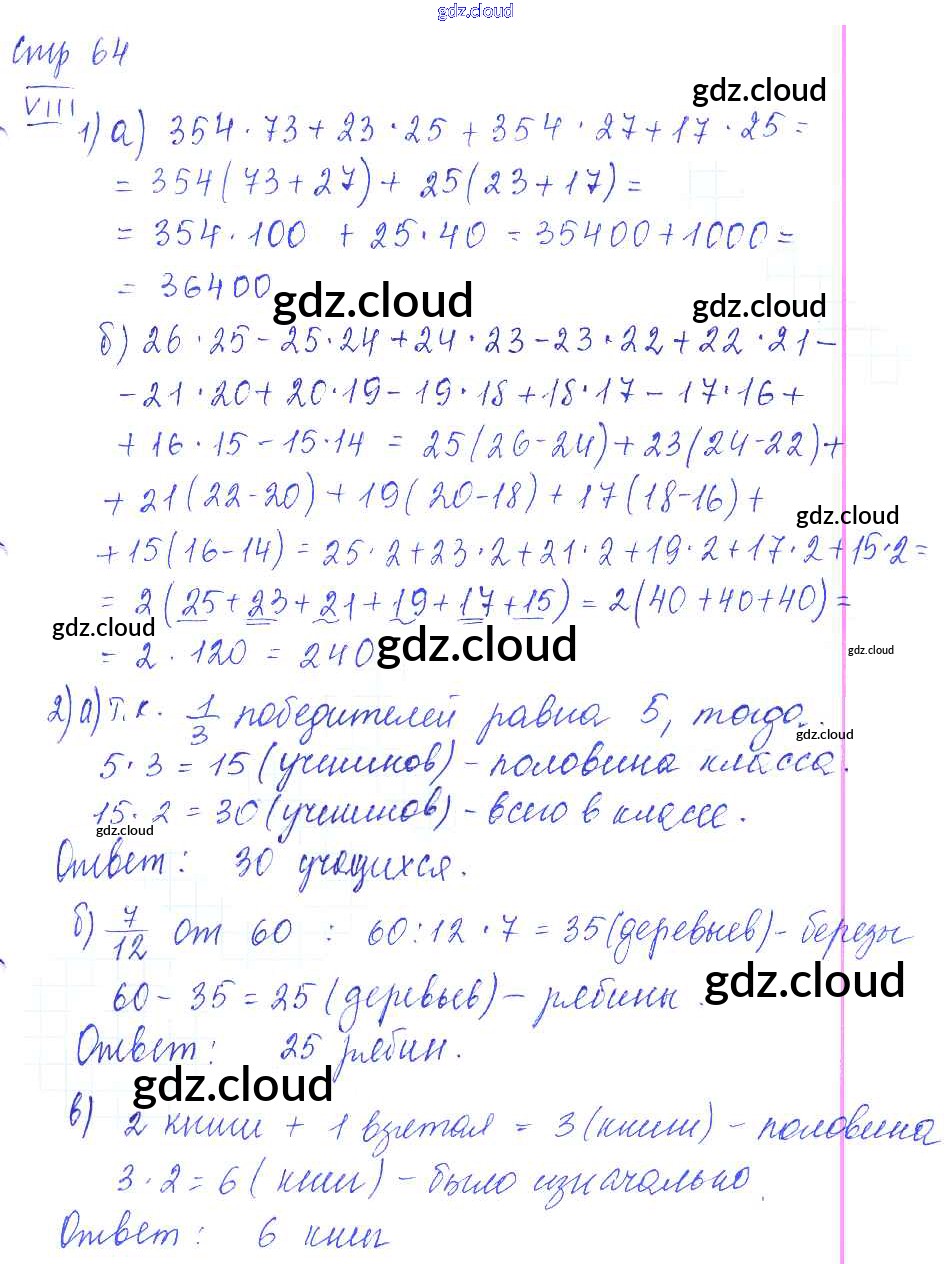 gdz.cloud
Стр 64
gdz.cloud
VIII
1) а) 354 · 73 + 23 · 25 + 354 · 27 + 17 · 25 =
= 354(73 + 27) + 25(23 + 17) =
= 354 · 100 + 25 · 40 = 35400 + 1000 =
= 36400
gdz.cloud gdz.cloud
б) 26 · 25 - 25 · 24 + 24 · 23 - 23 · 22 + 22 · 21 -
- 21 · 20 + 20 · 19 - 19 · 18 + 18 · 17 - 17 · 16 +
+ 16 · 15 - 15 · 14 = 25(26 - 24) + 23(24 - 22) +
+ 21(22 - 20) + 19(20 - 18) + 17(18 - 16) +
gdz.cloud
+ 15(16 - 14) = 25 · 2 + 23 · 2 + 21 · 2 + 19 · 2 + 17 · 2 + 15 · 2 =
= 2(25 + 23 + 21 + 19 + 17 + 15) = 2(40 + 40 + 40) =
gdz.cloud gdz.cloud gdz.cloud
= 2 · 120 = 240
2) а) Т.к. 1/3 победителей равна 5, тогда
gdz.cloud
5 · 3 = 15 (учеников) - половина класса.
15 · 2 = 30 (учеников) - всего в классе.
gdz.cloud
Ответ: 30 учащихся.
б) 7/12 от 60 : 60 : 12 · 7 = 35 (деревьев) - березы
gdz.cloud
60 - 35 = 25 (деревьев) - рябины.
Ответ: 25 рябин.
gdz.cloud
в) 2 книги + 1 взятая = 3 (книги) - половина
3 · 2 = 6 (книг) - было изначально.
Ответ: 6 книг